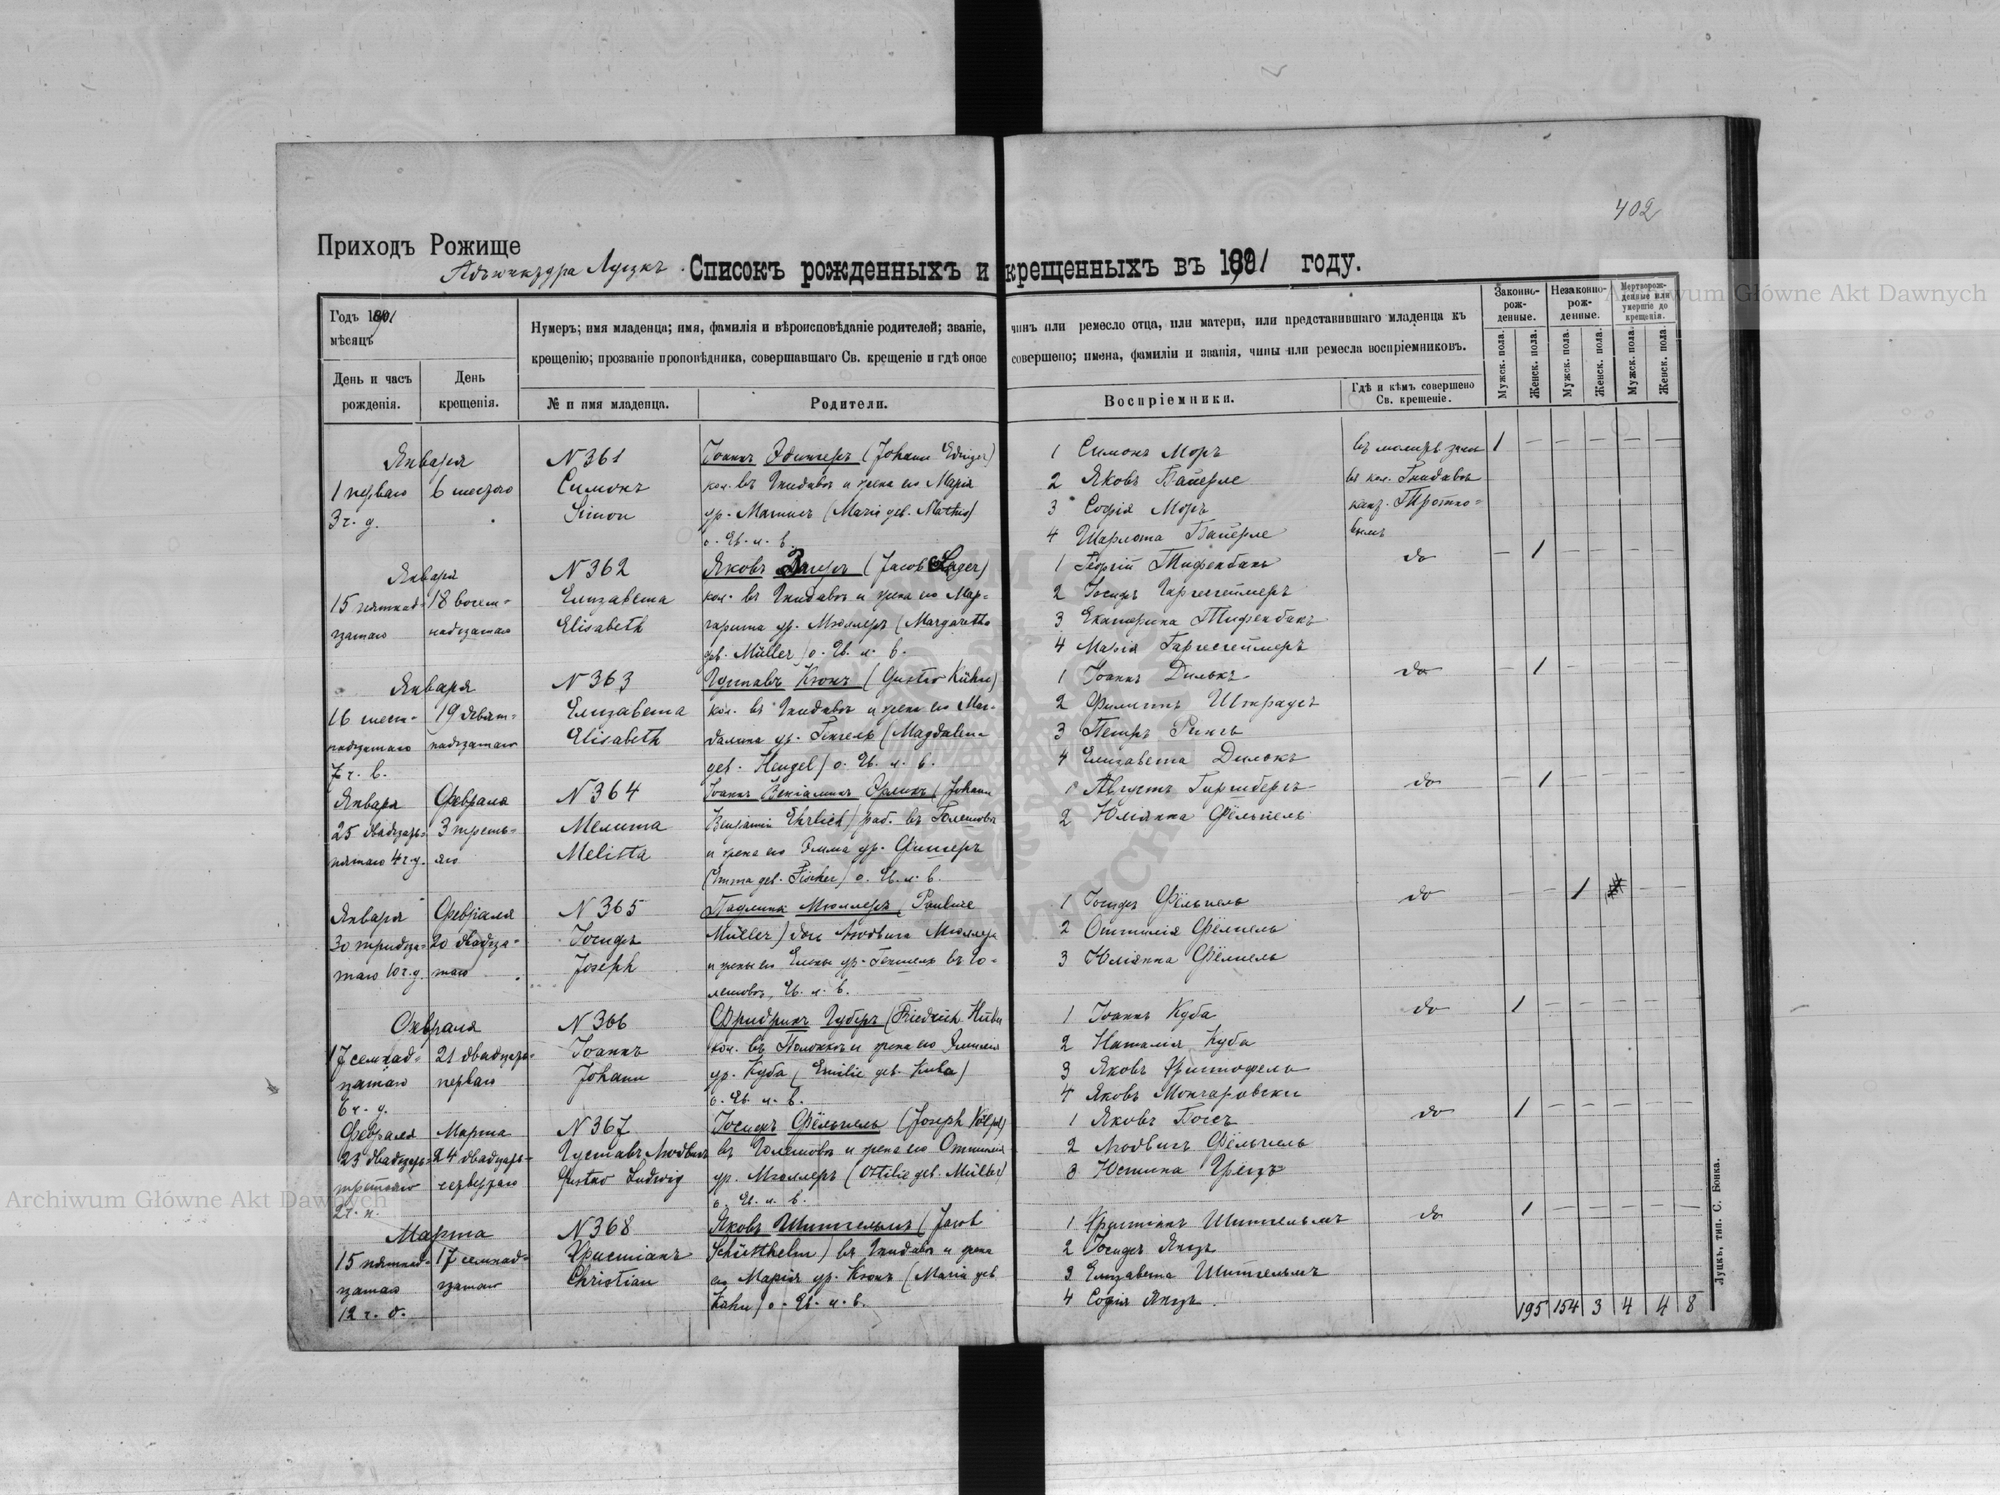 402
Приходъ Рожище
Адъюнктура Луцкъ. Списокъ рожденныхъ и крещенныхъ въ 1891 году.
Годъ 1891
мѣсяцъ
День и часъ рожденія.
День крещенія.
Нумеръ; имя младенца; имя, фамилія и вѣроисповѣданіе родителей; званіе, чинъ или ремесло отца, или матери, или представившаго младенца къ
крещенію; прозваніе проповѣдника, совершавшаго Св. крещеніе и гдѣ оное совершено; имена, фамиліи и званія, чины или ремесла воспріемниковъ.
№ и имя младенца.
Родители.
Воспріемники.
Гдѣ и кѣмъ совершено Св. крещеніе.
Законно-рож-денные.
Незаконно-рож-денные.
Мертворож-денные или умершіе до крещенія.
Мужск. пола.
Женск. пола.
Мужск. пола.
Женск. пола.
Мужск. пола.
Женск. пола.
Января
1 перваго
3 ч. д.
6 шестаго
N 361
Симонъ
Simon
Іоаннъ Эдингеръ (Johann Edinger)
кол. въ Гнидавѣ и жена его Марія
ур. Матисъ (Maria geb. Mathis)
о. Ев. л. в.
1 Симонъ Моръ
2 Яковъ Байерле
3 Софія Моръ
4 Шарлота Байерле
въ кол. Гнидавѣ
1
Января
15 пятнад-
цатаго
18 восем-
надцатаго
N 362
Елизавета
Elisabeth
Яковъ (Jacob Sager)
кол. въ Гнидавѣ и жена его Мар-
гарита ур. Мюллеръ (Margaretha
geb. Müller) о. Ев. л. в.
1 Георгій Тифенбахъ
2 Іосифъ Гаргеймеръ
3 Екатерина Тифенбахъ
4 Марія
do
1
Января
16 шест-
надцатаго
7 ч. в.
19 девят-
надцатаго
N 363
Елизавета
Elisabeth
Густавъ Кюнъ (Gustav Kühn)
кол. въ Гнидавѣ и жена его Маг-
далина ур. Генгель (Magdalena
geb. Hengel) о. Ев. л. в.
1 Іоаннъ Дилькъ
2 Филиппъ Штраусъ
3 Петръ Рингъ
4 Елизавета Дилькъ
do
1
Января
25 двадцать-
пятаго 4 ч. д.
Февраля
3 треть-
яго
N 364
Мелита
Melitta
Іоаннъ Веніаминъ Эрлихъ (Johann
Benjamin Ehrlich) раб. въ Голешовѣ
и жена его Эмма ур. Фишеръ
(Emma geb. Fischer) о. Ев. л. в.
1 Августъ Гиршбергъ
2 Юліянна Фёльпель
do
1
Января
30 тридца-
таго 10 ч. д.
Февраля
20 двадца-
таго
N 365
Іосифъ
Joseph
Паулина Мюллеръ (Pauline
Müller) дочь Людвига Мюллера
и жены его Елены ур. въ Го-
лешовѣ, Ев. л. в.
1 Іосифъ Фёльпель
2 Оттилія Фёлпель
3 Юліянна Фёлпель
do
1
Февраля
17 семнад-
цатаго
6 ч. у.
21 двадцать-
перваго
N 366
Іоаннъ
Johann
Фридрихъ Губеръ (Friedrich Huber
кол. въ Полонкѣ и жена его Эмилія
ур. Куба (Emilie geb. Kuba)
о. Ев. л. в.
1 Іоаннъ Куба
2 Наталія Куба
3 Яковъ Христофель
4 Яковъ Мончаровски
do
1
Февраля
23 двадцать-
третьяго
2 ч. н.
Марта
24 двадцать-
четвертаго
N 367
Густавъ Людвигъ
Gustav Ludwig
Іосифъ Фёльпель (Joseph Völpel)
въ Голешовѣ и жена его Оттилія
ур. Мюллеръ (Ottilie geb. Müller)
о. Ев. л. в.
1 Яковъ Боссъ
2 Людвигъ Фёльпель
3 Юстина Грёцъ
do
1
Марта
15 пятнад-
цатаго
12 ч. д.
17 семнад-
цатаго
N 368
Христіанъ
Christian
Яковъ Шиттгельмъ (Jacob
Schütthelm) въ Гнидавѣ и жена
его Марія ур. Кюнъ (Maria geb.
Kühn) о. Ев. л. в.
1 Христіанъ Шиттгельмъ
2 Іосифъ Янцъ
3 Елизавета Шиттгельмъ
4 Софія Янцъ.
do
1
195 154 3 4 4 8
Луцкъ, тип. С. Бонка.
Archiwum Główne Akt Dawnych
Archiwum Główne Akt Dawnych